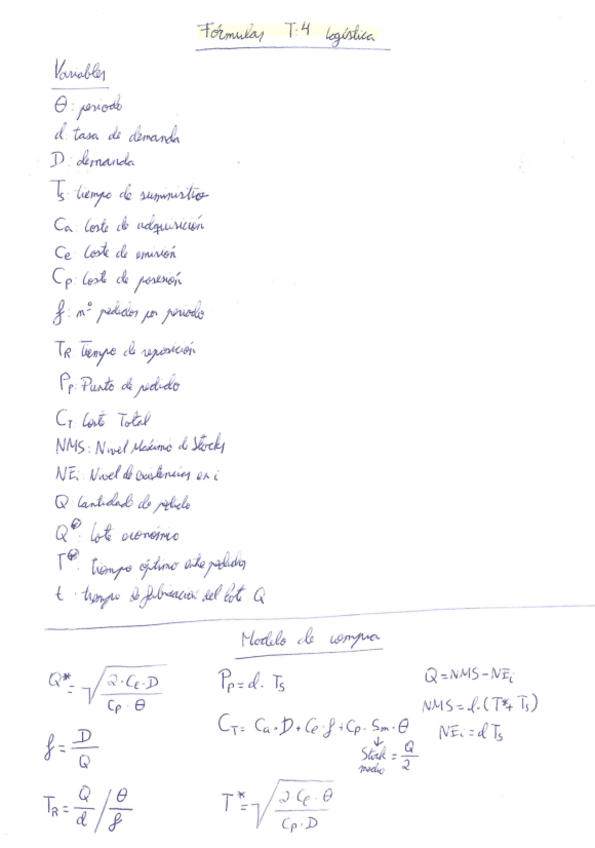 Fórmulas T:4 Logística
Variables
θ: periodo
d: tasa de demanda
D: demanda
Ts: tiempo de suministro
Ca: Coste de adquisición
Ce: Coste de emisión
Cp: Coste de posesión
f: nº pedidos por periodo
TR: Tiempo de reposición
Pp: Punto de pedido
CT: Coste Total
NMS: Nivel Máximo d Stocks
NEi: Nivel de existencias en i
Q: Cantidad de pedido
Q*: Lote económico
T*: tiempo óptimo entre pedidos
t: tiempo de fabricación del lote Q
Modelo de compra
Q* = √(2·Ce·D / Cp·θ)
Pp = d. Ts
Q = NMS - NEi
NMS = d.(T* + Ts)
f = D/Q
CT = Ca·D + Ce·f + Cp·Sm·θ
NEi = d Ts
↓
Stock medio = Q/2
TR = Q/d / θ/f
T* = √(2·Ce·θ / Cp·D)